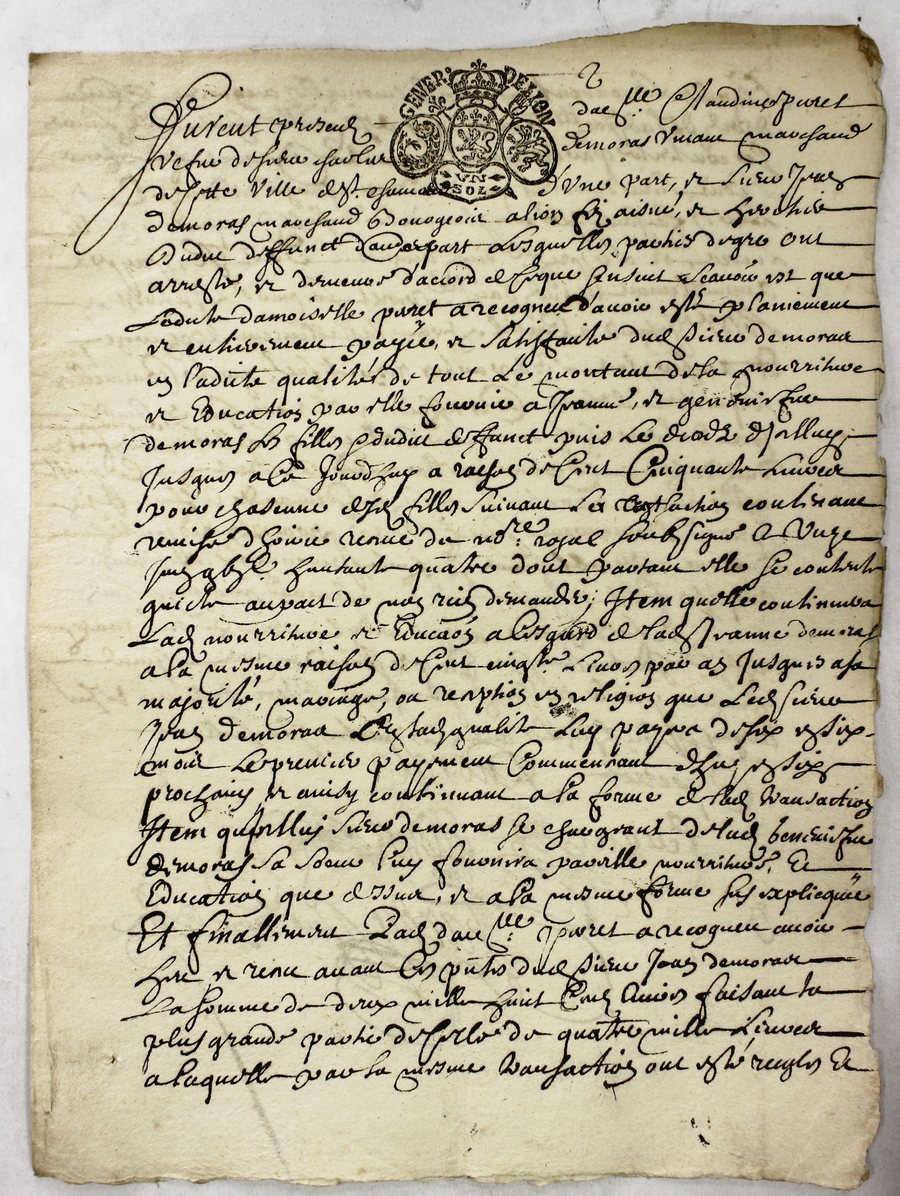 GENER. DE LION
VN
SOL
2
Furent presens dae lle Claudine pivret
vefve de sieur Charles demoras vivant marchand
de cette ville de st. chamond d'une part, et sieur Jean
demoras marchand Bourgeois a lion fils aisné, et heritier
dudict deffunct d'autre part Lesquelles parties de gre ont
arresté, et demeuré d'accord de ce que sensuit scavoir est que
Ladite damoiselle pivret a recogneu d'avoir esté plainement
et entierement payée, et satisffaite dud sieur demoras
en ladite qualité de tout Le montant de la nourriture
et Education par elle fournie a Jeanne, et
demoras les filles dudict deffunct puis Le deced d'Icelluy
Jusques a ce Jourdhuy a raison de Cent Cinquante Livres
pour chascune desd filles suivant La transaction contenant
remise d'hoirie receue du nore. royal soubsigné
huictante quatre dont partant elle se contente
quicte au pact de nen rien demander; Item quelle continuera
Lad nourriture et Education a lesgard de lad Jeanne demoras
a la mesme raison de Cent cinqte Livres par an Jusques a sa
majorité, mariage, ou reception en religion que Led sieur
Jean demoras Luy payera de six en six
mois Le premier payement Commencant
prochain et ainsy continuant a la forme de lad transaction
Item qu'Icelluy sieur demoras se chargeant de lad
demoras sa soeur Luy fournira pareille nourriture, Et
Education que dessus, et a la mesme forme sus explicquée
Et finallement Lad dae lle. pivret a recogneu avoir
heu et receu avant Ces pntes dud sieur Jean demoras
La somme de deux mille huict Cent Livres faisant la
plus grande partie de Celle de quatre mille Livres
a laquelle par la mesme transaction ont esté reiglés Et